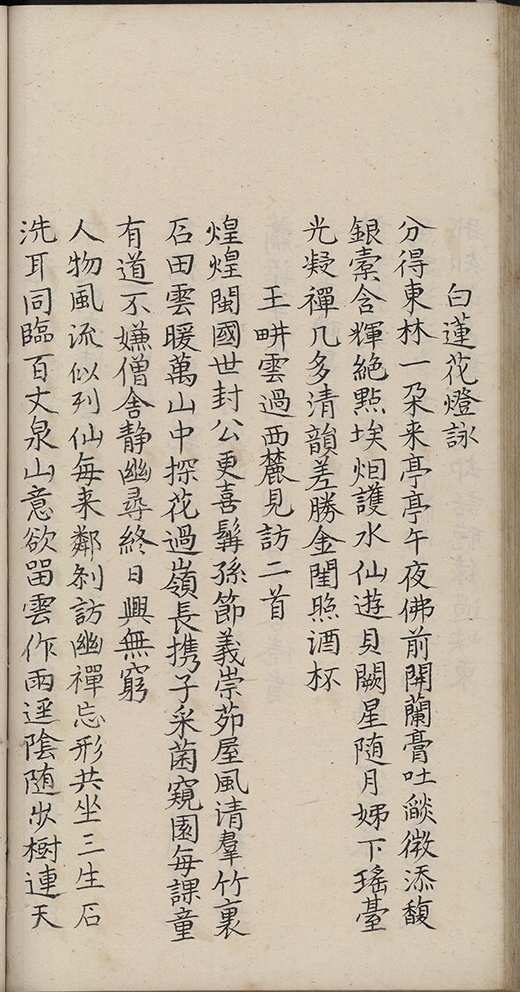 白蓮花燈詠
分得東林一朶来亭亭午夜佛前開蘭膏吐燄微添馥
銀橐含輝絶點埃烟護水仙遊貝闕星随月姊下瑤臺
光凝禪几多清韻差勝金閨照酒杯
王畊雲過西麓見訪二首
煌煌閩國世封公更喜髯孫節義崇茆屋風清羣竹裏
石田雲暖萬山中探花過嶺長携子采菌窺園每課童
有道不嫌僧舍静幽尋終日興無窮
人物風流似列仙每来鄰刹訪幽禪忘形共坐三生石
洗耳同臨百丈泉山意欲留雲作雨遥陰随步樹連天